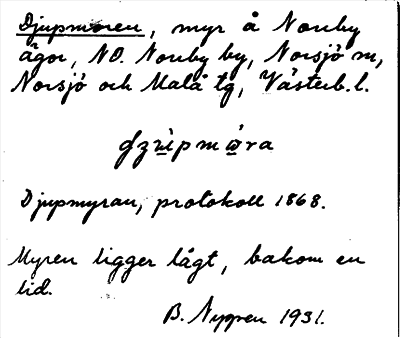 Djupmoren, myr å Norrby
ägor, NO. Norrby by, Norsjö sn,
Norsjö och Malå tg, Västerb. l.
Djupmyran, protokoll 1868.
Myren ligger lågt, bakom en
lid.
B. Nygren 1931.